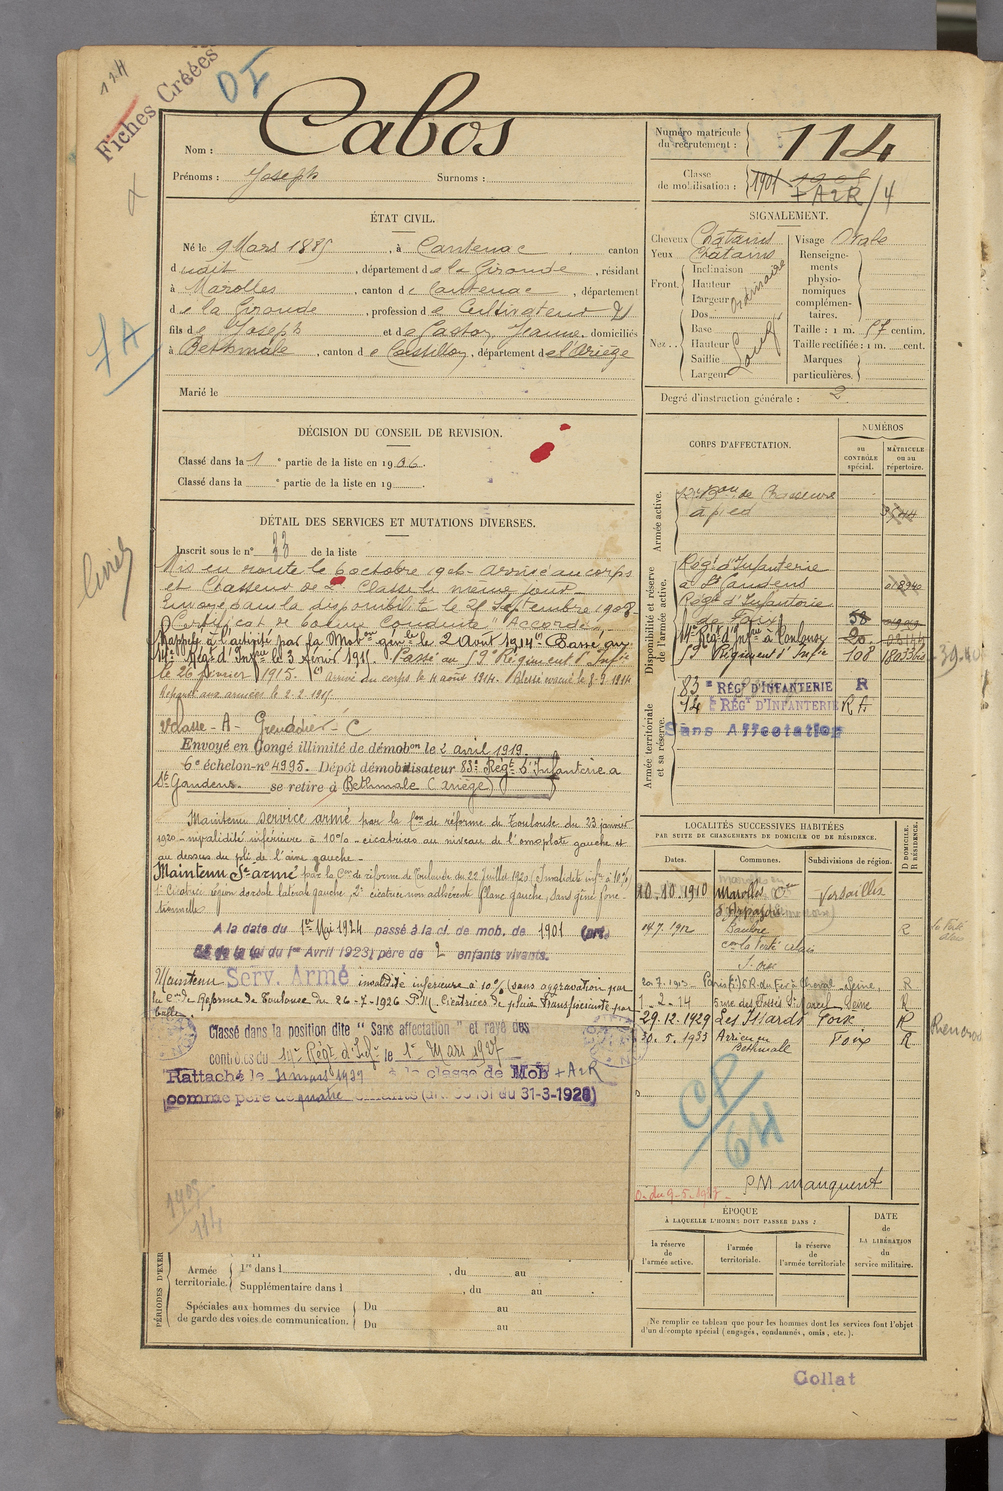 124
Fiches Créées
DI
Nom : Cabos
Prénoms : Joseph Surnoms :
Numéro matricule du recrutement : 114
Classe de mobilisation : 1901
+ A2R / 4
ÉTAT CIVIL.
Né le 9 Mars 1885, à Cantenac, canton
dudit, département de la Gironde, résidant
à Marolles, canton de Cantenac, département
de la Gironde, profession de Cultivateur
fils de Joseph et de Castoy Jeanne, domiciliés
à Bethmale, canton de Castillon, département de l'Ariège
Marié le
FA
SIGNALEMENT.
Cheveux Châtains
Yeux Châtains
Front. Inclinaison Hauteur Largeur Ordinaire
Nez. Dos Base Hauteur Saillie Largeur
Visage Ovale
Renseignements physionomiques complémentaires.
Taille : 1 m. 57 centim.
Taille rectifiée : 1 m. cent.
Marques particulières.
Degré d'instruction générale : 2
DÉCISION DU CONSEIL DE REVISION.
Classé dans la 1e partie de la liste en 1906.
Classé dans la e partie de la liste en 19
DÉTAIL DES SERVICES ET MUTATIONS DIVERSES.
Inscrit sous le n° 33 de la liste
Mis en route le 6 octobre 1906. Arrivé au corps
et Chasseur de 2e Classe le même jour
Envoyé dans la disponibilité le 25 Septembre 1908
Certificat de bonne Conduite "Accordé"
Rappelé à l'activité par la Mobon génle le 2 Août 1914 Passé au
14e Régt d'Infie le 3 février 1915. Passé au 53e Régiment d'Infie
le 26 février 1915. Arrivé au corps le 4 août 1914. Blessé évacué le 8-9-1914
Reparti aux armées le 2-2-1915
Classe - A - Grenadier - C
Envoyé en Congé illimité de démobon le 2 avril 1919.
6e échelon - n° 4995. Dépôt démobilisateur 83e Régt d'Infanterie à
St Gaudens. se retire à Bethmale (Ariège)
Maintenu service armé par la Con de réforme de Toulouse du 23 janvier
1920 - invalidité inférieure à 10% - cicatrices au niveau de l'omoplate gauche et
au dessus du pli de l'aine gauche -
Maintenu Sce armé par la Con de réforme de Toulouse du 22 juillet 1920 (Invalidité infre à 10%)
1° Cicatrice région dorsale latérale gauche, 2° cicatrice non adhérente flanc gauche, sans gêne fonctionnelle
A la date du 1er Mai 1924 passé à la cl. de mob. de 1901 (art.
de la loi du 1er Avril 1923) père de 2 enfants vivants.
Maintenu Serv. Armé invalidité inférieure à 10% (sans aggravation par
la Con de Réforme de Toulouse du 26-7-1926 P.M. Cicatrices de plaie transfixiante par
balle
Classé dans la position dite "Sans affectation" et rayé des
contrôles du 14e Régt d'Inf. le 1er Mars 1927
Rattaché le 31 mars 1929 à la classe de Mob + A2R
comme père de quatre enfants (art. loi du 31-3-1928)
1905
114
CORPS D'AFFECTATION.
NUMÉROS
au CONTRÔLE spécial.
MATRICULE ou au répertoire.
Armée active.
Bon de Chasseurs
à pied
Disponibilité et réserve de l'armée active.
Régt d'Infanterie
à St Gaudens
Régt d'Infanterie
de Foix 58
14e Régt d'Infie à Toulouse 20
53e Régiment d'Infie 108
Armée territoriale et sa réserve.
83e RÉGt D'INFANTERIE R
14e RÉGt D'INFANTERIE RA
Sans Affectation
LOCALITÉS SUCCESSIVES HABITÉES
PAR SUITE DE CHANGEMENTS DE DOMICILE OU DE RÉSIDENCE.
Dates. Communes. Subdivisions de région. D DOMICILE. R RÉSIDENCE.
10.10.1910 Marolles Versailles
14.7.1912 R
20.7.1913 Paris Seine R
1-2-14 5 rue des Fossés St Marcel Seine R
29.12.1929 Les Issards Foix R
30.5.1933 Arrien en Bethmale Foix R
CP
64
PM manquent
du 9-5-1917
ÉPOQUE
À LAQUELLE L'HOMME DOIT PASSER DANS :
la réserve de l'armée active.
l'armée territoriale.
la réserve de l'armée territoriale
DATE de LA LIBÉRATION du service militaire.
PÉRIODES D'EXER
Armée territoriale. 1re dans l , du au
Supplémentaire dans l , du au
Spéciales aux hommes du service de garde des voies de communication. Du au
Du au
Ne remplir ce tableau que pour les hommes dont les services font l'objet
d'un décompte spécial (engagés, condamnés, omis, etc.).
Collat